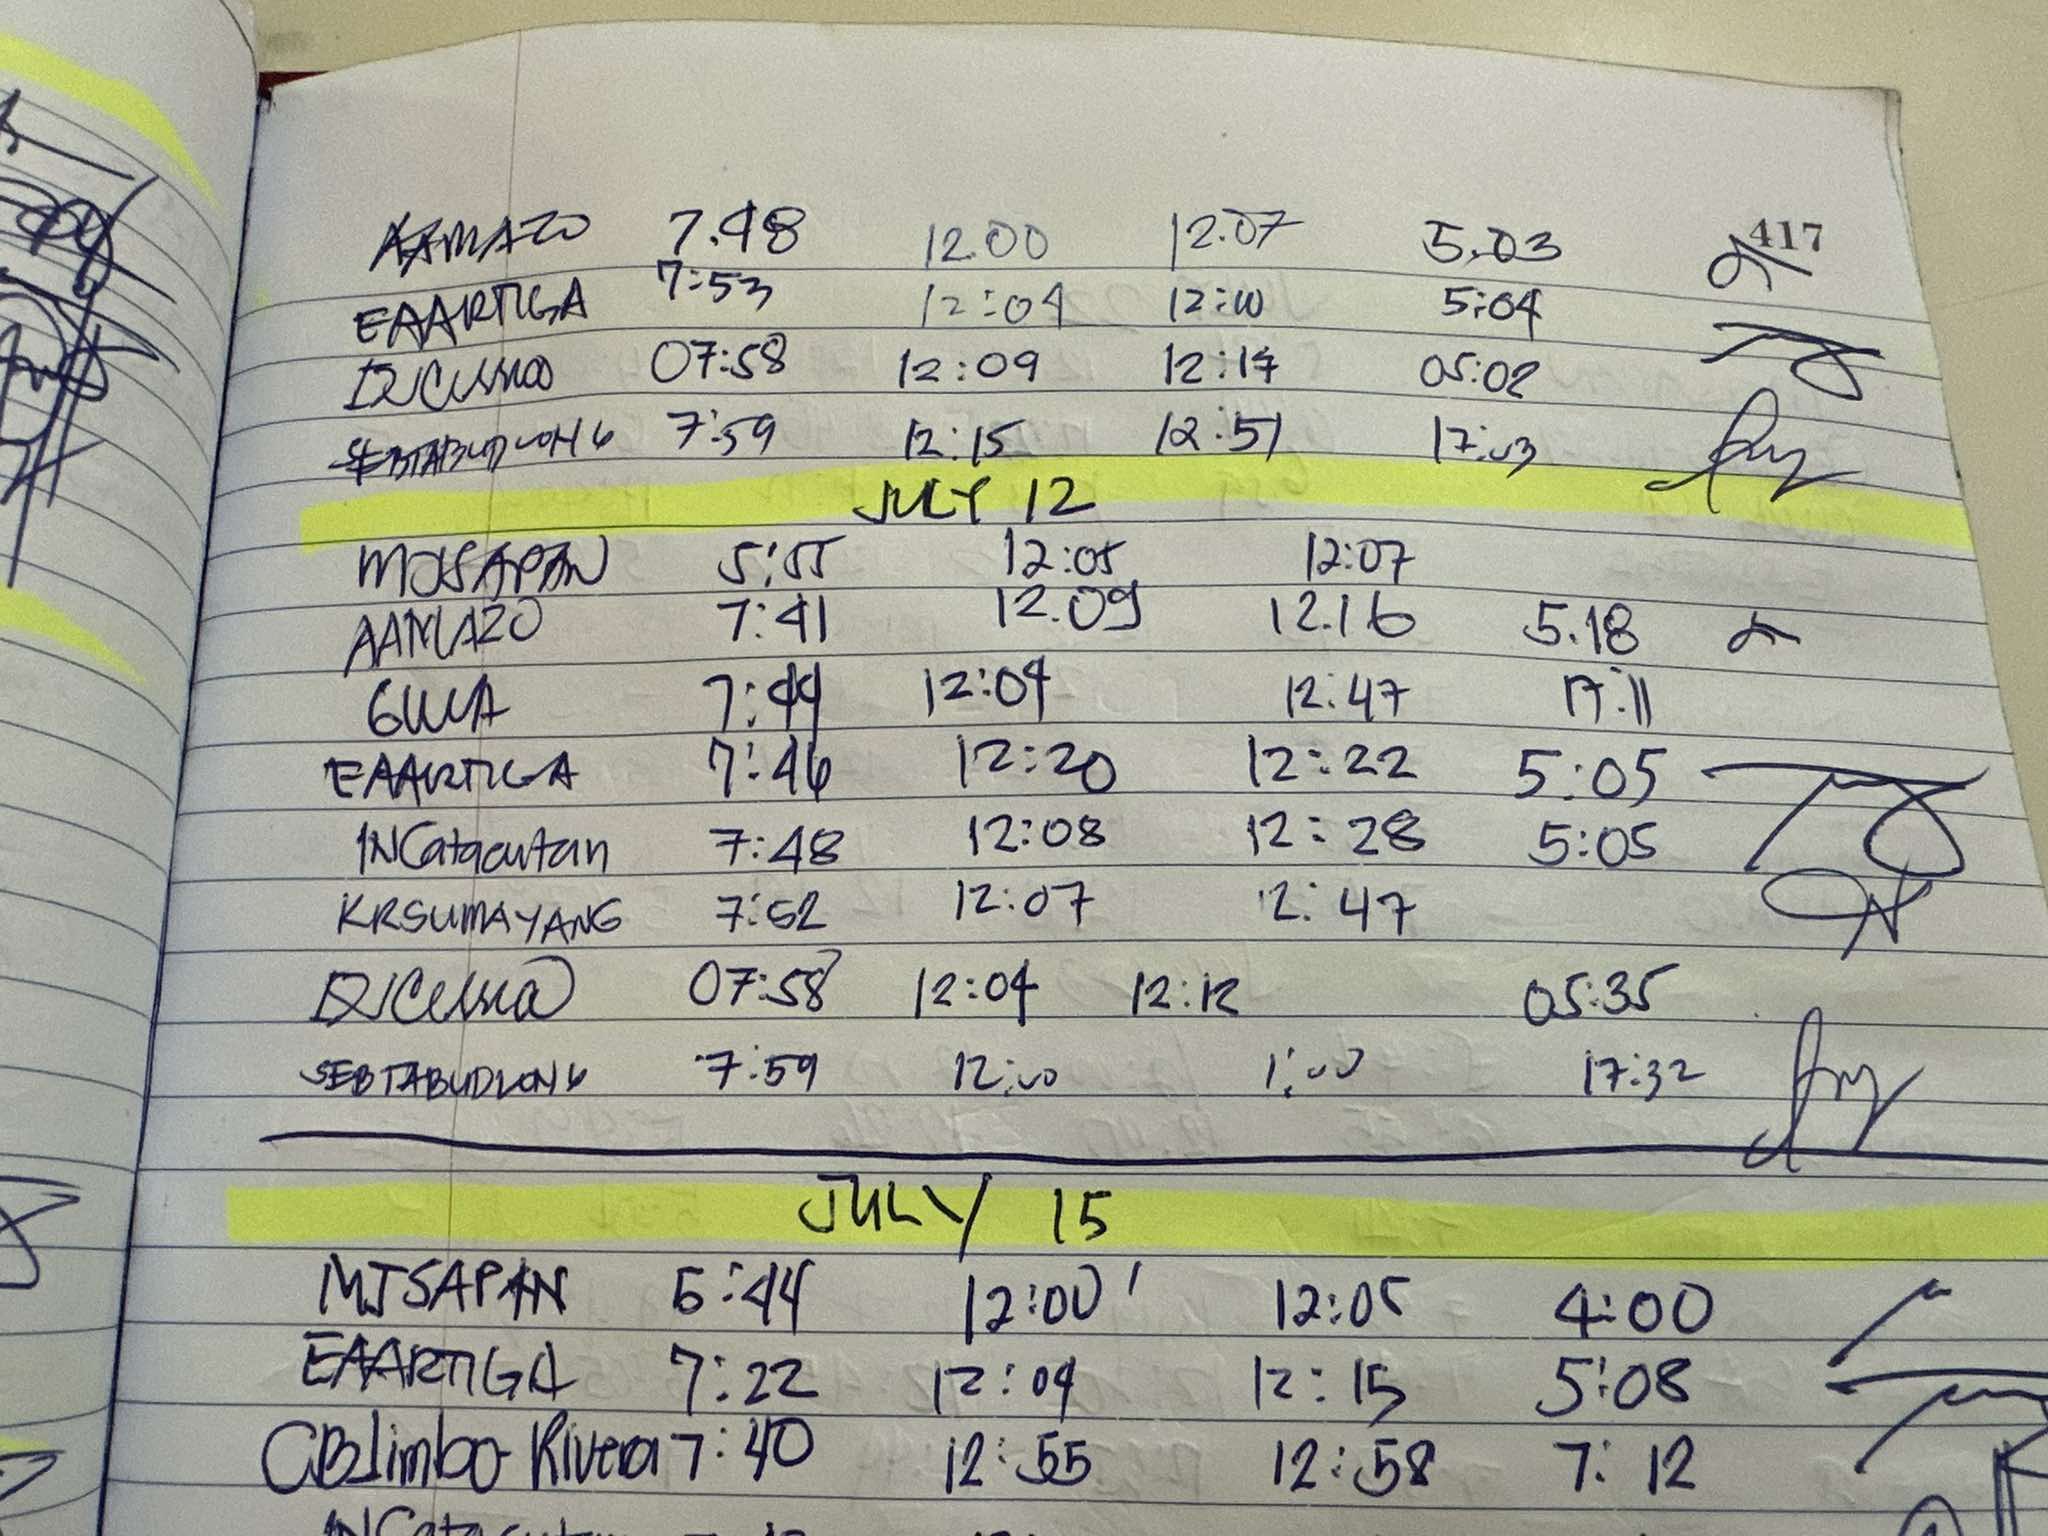 AAMAZO 7.48 12.00 12.07 5.03 417
EAARTIGA 7:53 12:04 12:10 5:04
07:58 12:09 12:14 05:02
SEBTABUDLONG 7:59 12:15 12:51 17:03
JULY 12
MJSAPAN 5:55 12:05 12:07
AAMAZO 7:41 12.09 12.16 5.18
7:44 12:04 12:47 17:11
EAARTIGA 7:46 12:20 12:22 5:05
INCatacutan 7:48 12:08 12:28 5:05
KRSUMAYANG 7:52 12:07 12:47
07:58 12:04 12:12 05:35
SEBTABUDLONG 7:59 12:00 1:00 17:32
JULY 15
MJSAPAN 5:44 12:00 12:05 4:00
EAARTIGA 7:22 12:04 12:15 5:08
CBJimbo-Rivera 7:40 12:55 12:58 7:12
INCatacutan